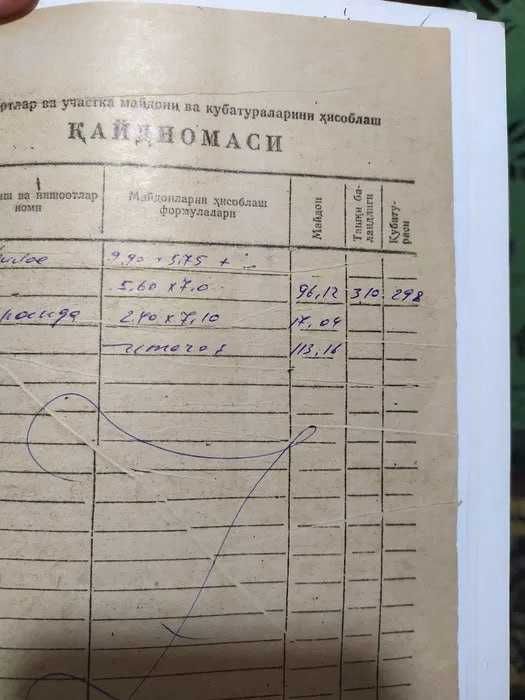 ртлар ва участка майдони ва кубатураларини ҳисоблаш
ҚАЙДНОМАСИ
ва иншоотлар номи
Майдонларни ҳисоблаш формулалари
Майдон
Ташқи баландлиги
Кубатураси
9,90 × 5,75 +
5,60 × 7,0 96,12 310 298
2,40 × 7,10 17,04
итого: 113,16